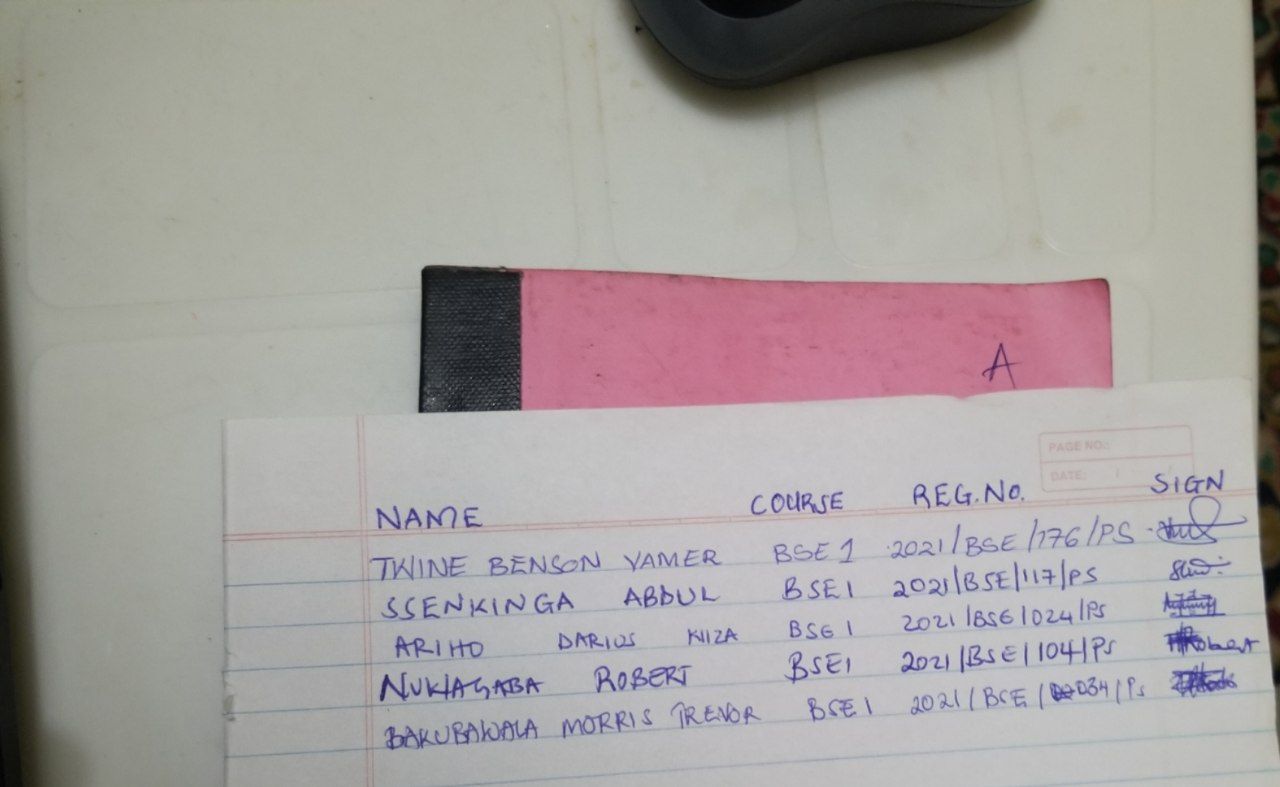 A
PAGE NO.:
DATE:
NAME COURSE REG.NO. SIGN
TWINE BENSON YAMER BSE 1 2021/BSE/176/PS
SSENKINGA ABDUL BSE1 2021/BSE/117/PS
ARIHO DARIUS KIIZA BSE1 2021/BSE/024/PS
NUWAGABA ROBERT BSE1 2021/BSE/104/PS Robert
BAKUBAWALA MORRIS TREVOR BSE1 2021/BSE/034/PS